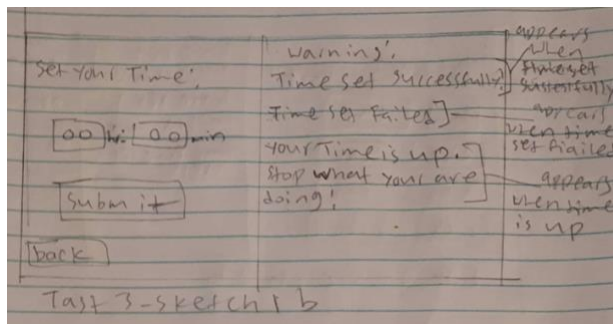 Set your Time:
00 hr: 00 min
Submit
back
Warning!
Time set successfully!
Time set Failed
your Time is up.
Stop what your are
doing!
appears
when
time set
sucessfully
appears
when time
set fiailed
appears
when time
is up
Tast 3-sketch 1 b